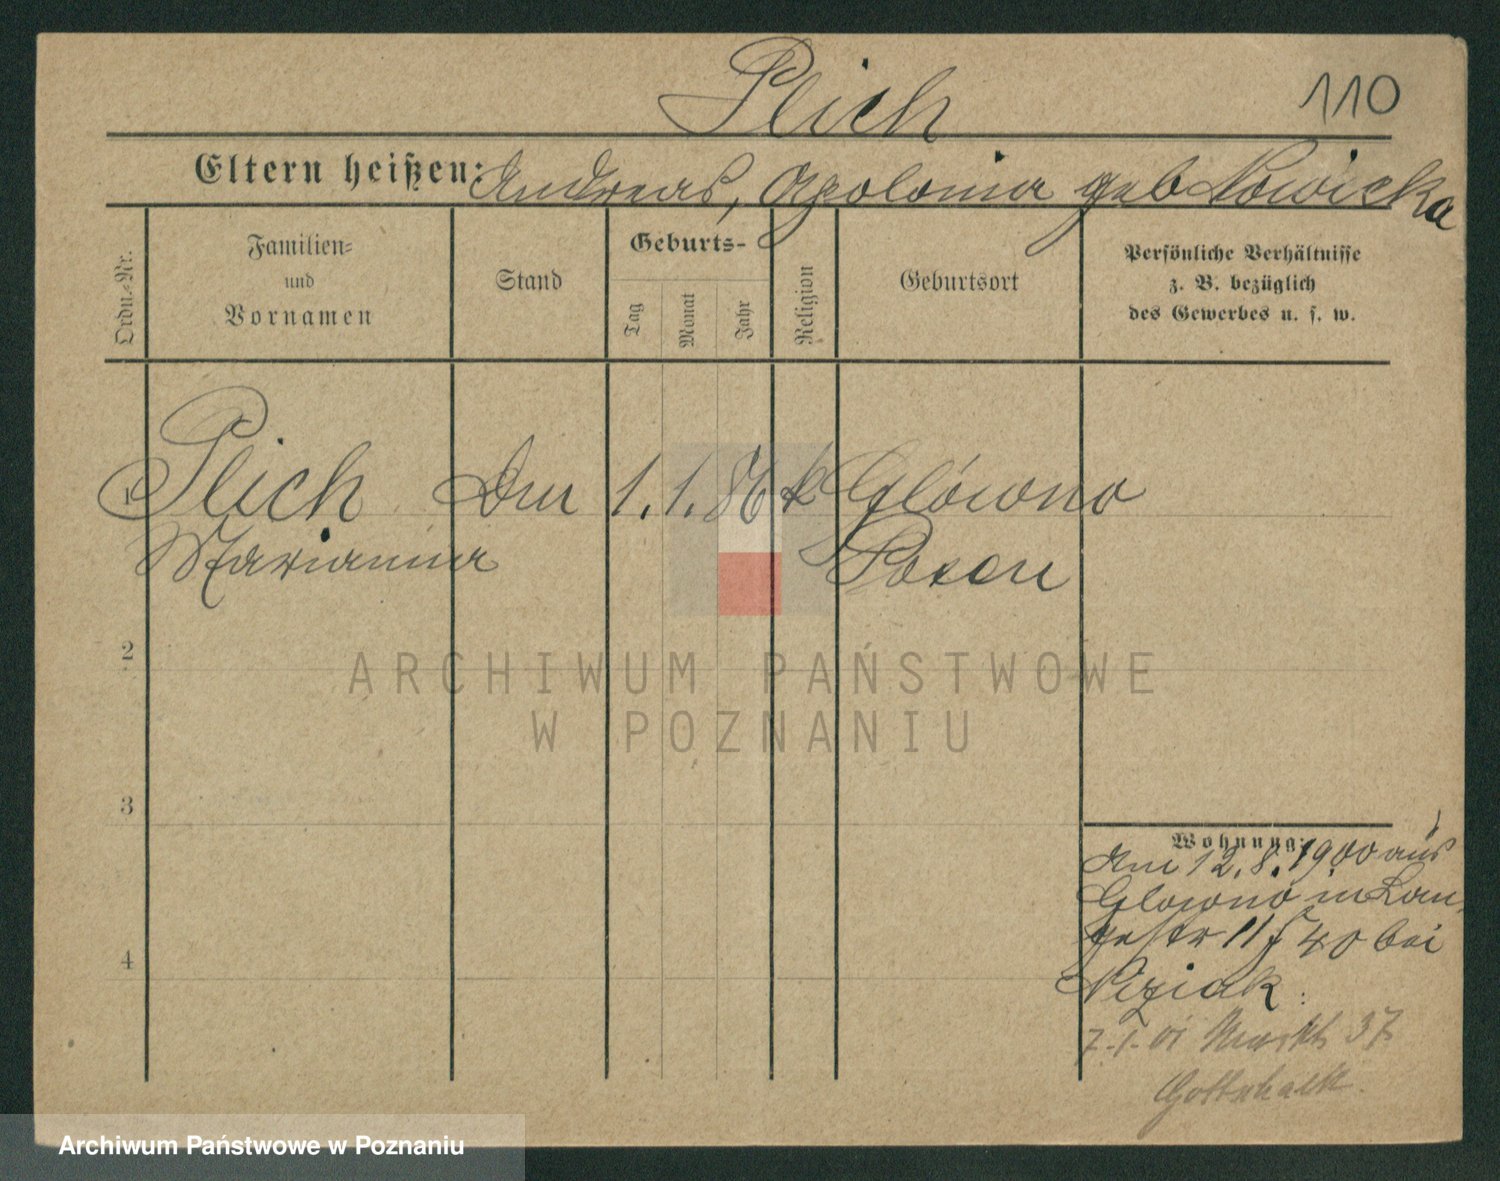 Plich
110
Eltern heißen: Andreas, Apolonia geb Nowicka
Ordn.-Nr.
Familien-
und
Vornamen
Stand
Geburts-
Tag
Monat
Jahr
Religion
Geburtsort
Persönliche Verhältnisse
z. B. bezüglich
des Gewerbes u. s. w.
1 Plich 1. 1. 86 k Glówno
Marianna Posen
2
3
4
Wohnung:
Am 12. 8. 1900 aus
Glowno in Lan
gestr 11 40 bei
7. 1. 01 Markt 37
Gottschalk.
ARCHIWUM PAŃSTWOWE
W POZNANIU
Archiwum Państwowe w Poznaniu